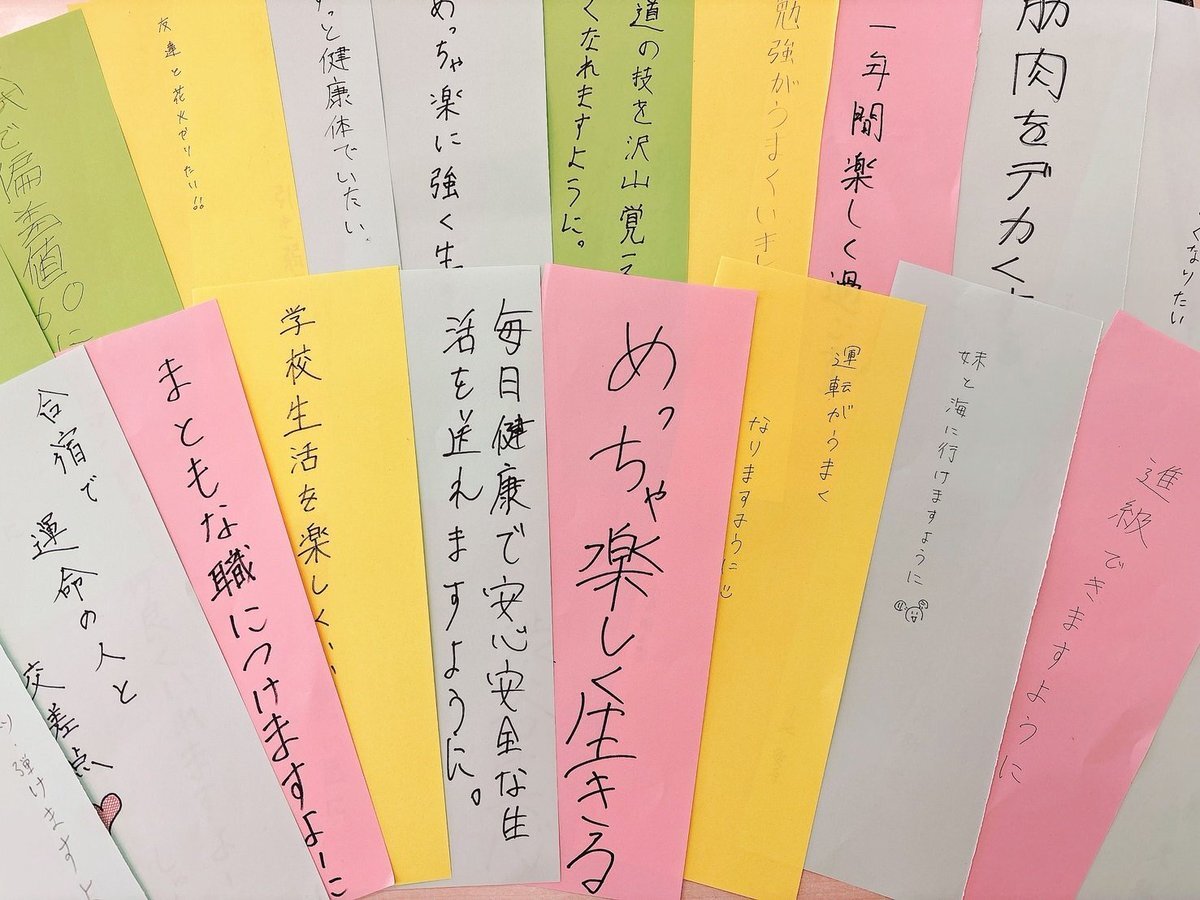 で偏差値60に
友達と花火がりたい!!
っと健康体でいたい.
めっちゃ楽に強く生
道の技を沢山覚え
くなれますように。
勉強がうまくいきし
一年間楽しく過
筋肉をデカく
くなりたい
弾けますよ
合宿で運命の人と
交差点
まともな職につけますよーに
学校生活を楽しく
毎日健康で安心安全な生
活を送れますように。
めっちゃ楽しく生きる
運転がうまく
なりますように
妹と海に行けますように
進級できますように